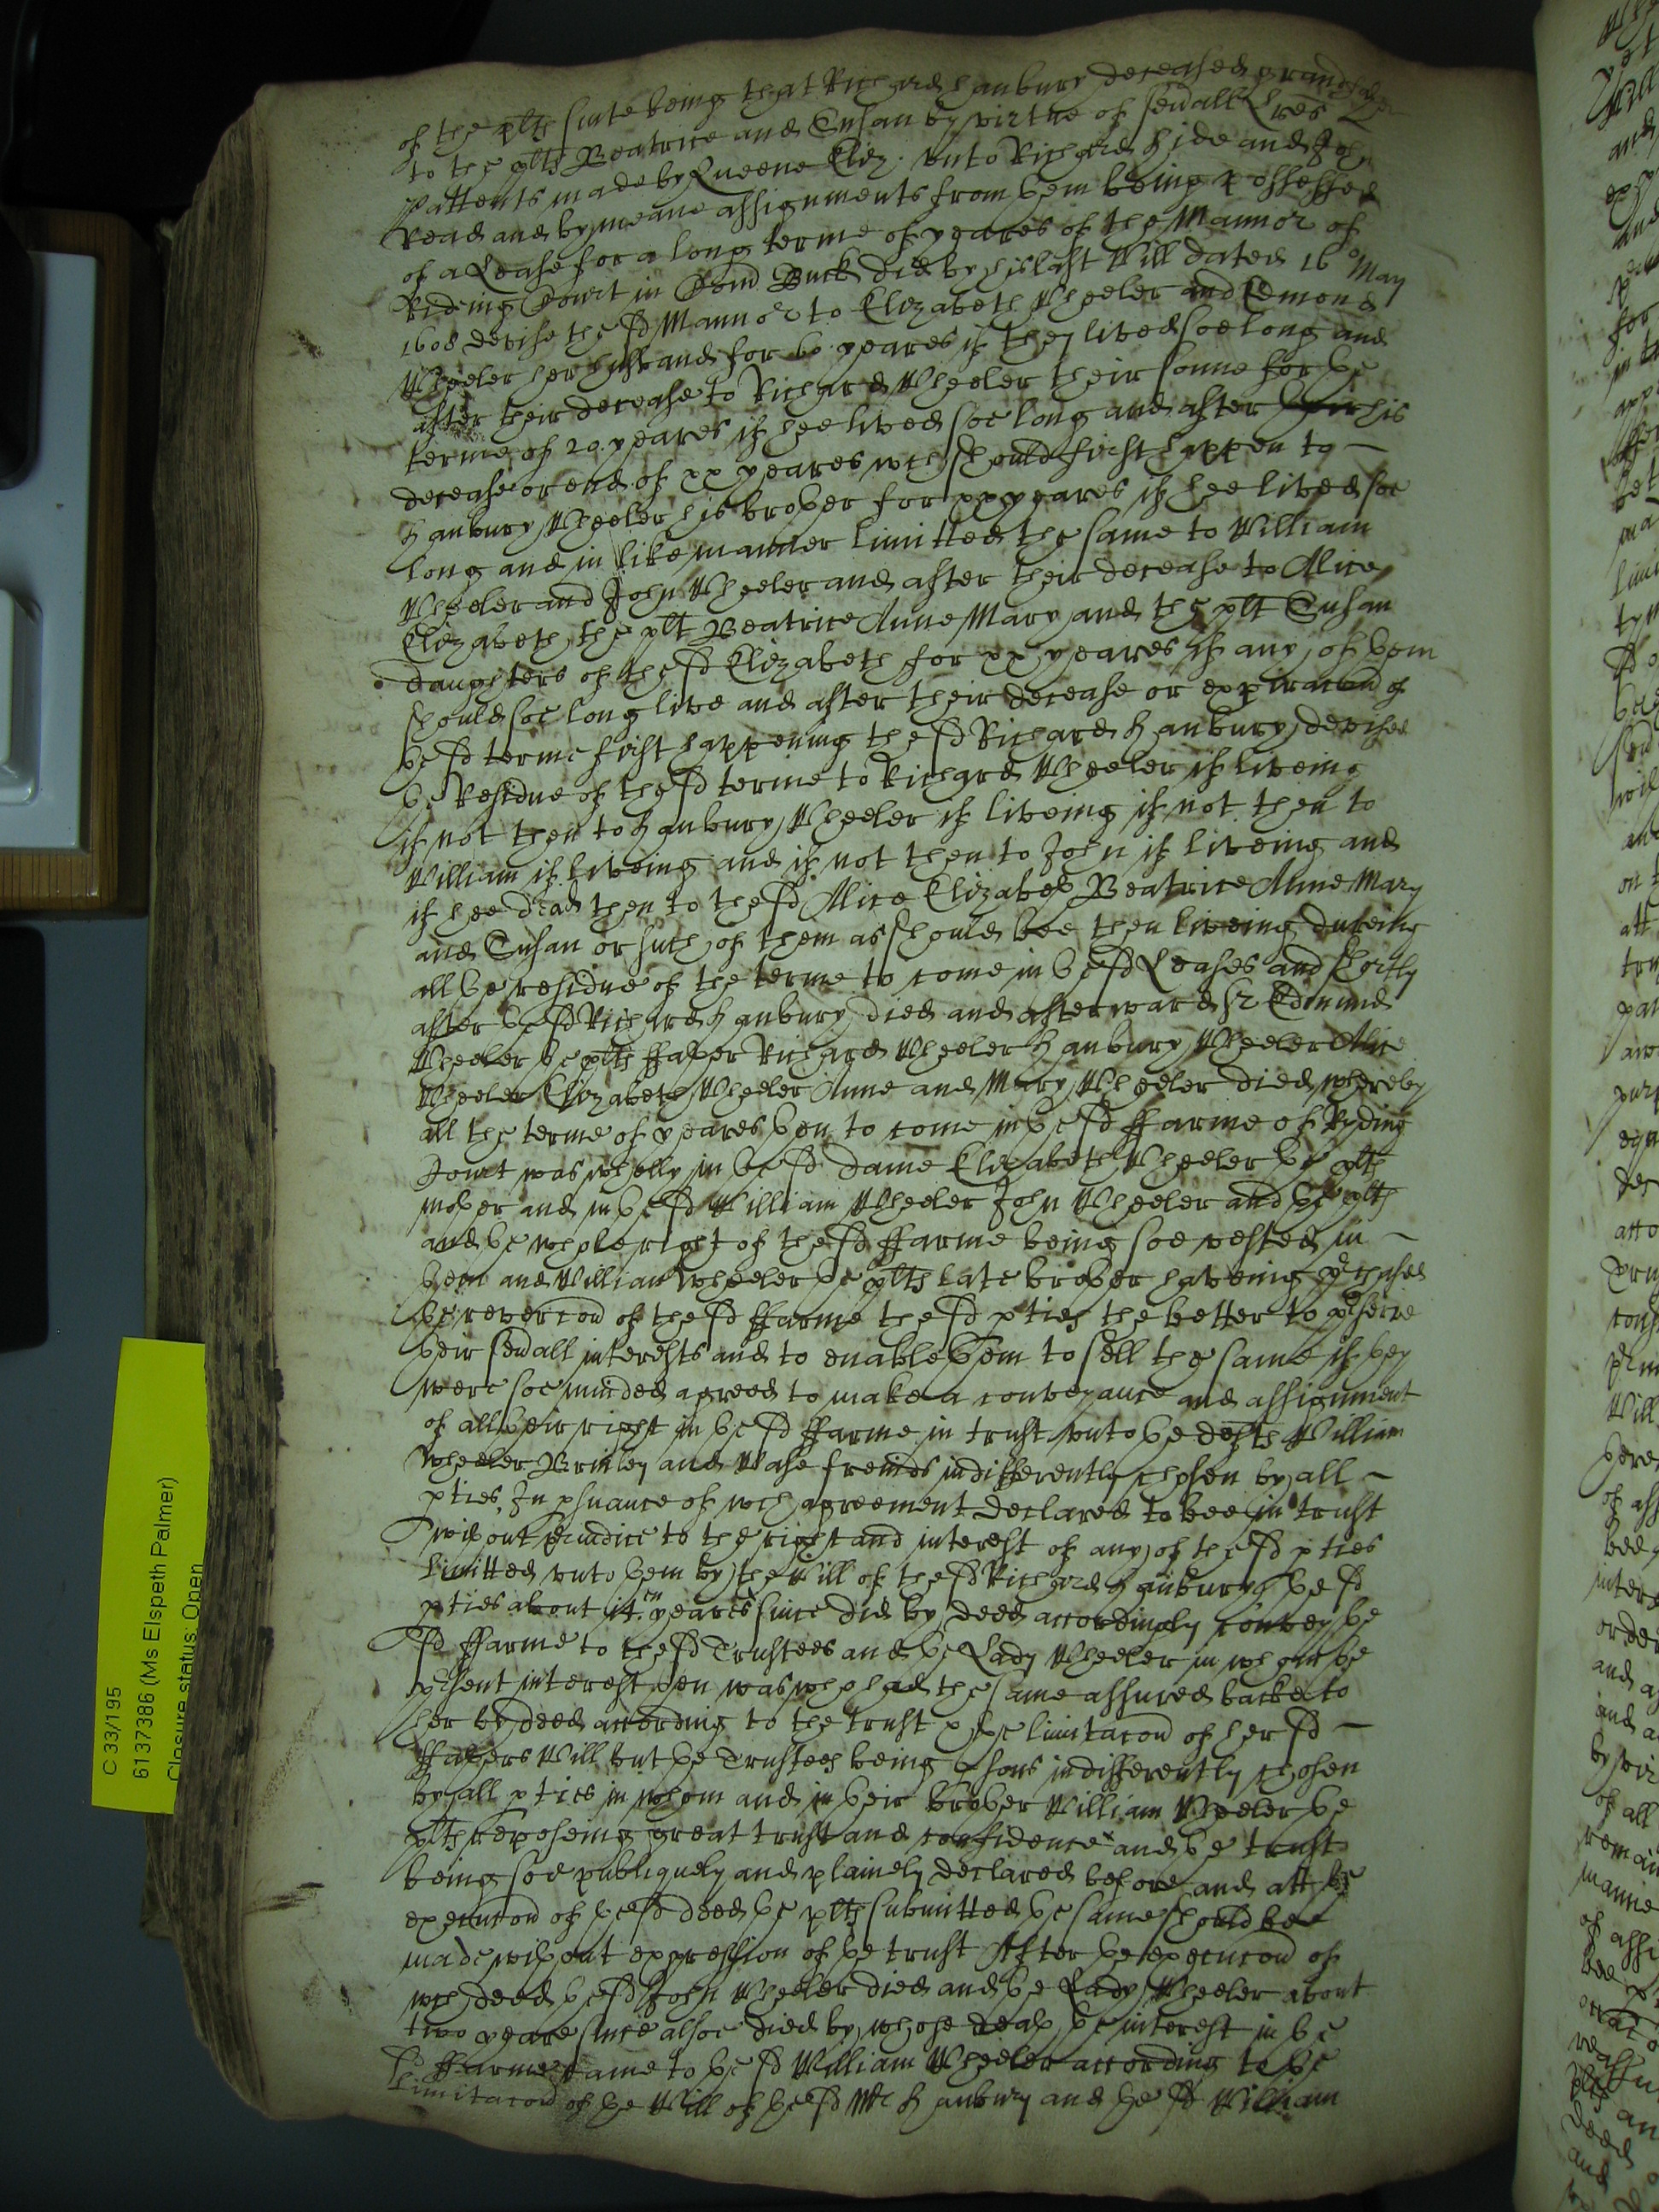 of the plts suite being that Richard Hanbury deceased grandfather
to the plts Beatrice and Susan by virtue of sevall Lres
Pattents made by Queene Eliz. unto Richard Hide and John
Read and by meane assignments from yem being possessed
of a Lease for a long terme of yeares of the Mannor of
Riding Court in Com Buck did by his last Will dated 16o May
1608 devise the sd Mannor to Elizabeth Wheeler and Edmond
Wheeler her husband for 60. yeares if they lived soe long and
after their decease to Richard Wheeler their sonne for ye
terme of 20. yeares if hee lived soe long and after his
decease or end of xx yeares wch should first happen to
Hanbury Wheeler his broyer for xx yeares if hee lived soe
long and in like manner limitted the same to William
Wheeler and John Wheeler and after their decease to Alice
Elizabeth, the plt Beatrice Anne Mary and the plt Susan
daughters of the sd Elizabeth for xx yeares if any of yem
should soe long live and after their decease or expiracon of
ye sd terme first happening the sd Richard Hanbury devised
ye Residue of the sd terme to Richard Wheeler if liveing
if not then to Hanbury Wheeler if liveing if not then to
William if liveing and if not then to John if liveing and
if hee dead then to the sd Alice Elizabeth Beatrice Anne Mary
and Susan or such of them as should bee then liveing dureing
all ye residue of the terme to come in ye sd Leases and shortly
after ye sd Richard Hanbury died and afterward Sr Edmund
Wheeler ye plts ffayer Richard Wheeler Hanbury Wheeler Alice
Wheeler Elizabeth Wheeler Anne and Mary Wheeler died whereby
all the terme of yeares yen to come in ye sd ffarme of Ryding
Court was wholly in ye sd dame Elizabeth Wheeler ye plts
moyer and in ye sd William Wheeler John Wheeler and ye plts
and ye whole right of the sd ffarme being soe vested in
yem and William Wheeler ye plts late broyer haveing pchased
ye revercon of the sd ffarme the sd pties the better to pserve
yeir sevall interests and to enable yem to sell the same if yey
were soe minded agreed to make a conveyance and assignment
of all yeir right in ye sd ffarme in trust unto ye defts William
Wheeler Brinley and Wase freinds indifferently chosen by all
pties, In psuance of wch agreement declared to bee in trust
wiyout pjudice to the right and interest of any of the sd pties
limitted unto yem by the Will of the sd Richard Hanbury ye sd
pties about 14.en yeares since did by deed accordingly convey ye
sd ffarme to the sd Trustees and ye Lady Wheeler in whom ye
psent interest yen was who had the same assured backe to
her by deed according to the trust & ye limitacon of her sd
ffayers Will but ye Trustees being psons indifferently chosen
by all pties in whom and in yeir broyer William Wheeler ye
plts reposeing great trust and confidence and ye trust
being soe publiquely and plainely declared before and att ye
execucon of ye sd deed ye plts submitted ye same should bee
made wiyout expression of ye trust After ye execucon of
wch deed ye sd John Wheeler died and ye Lady Wheeler about
two yeare since alsoe died by whose deay ye interest in ye
sd ffarme came to ye sd William Wheeler according to ye
limitacon of ye Will of ye sd Mr Hanbury and ye sd William
C 33/195
6137386 (Ms Elspeth Palmer)
Closure status: Open